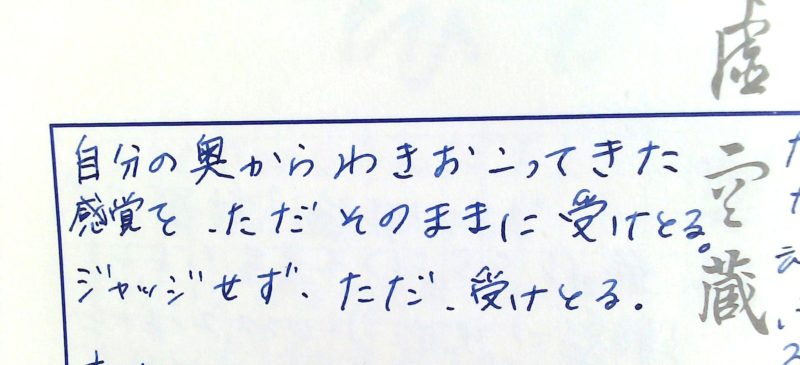 自分の奥からわきおこってきた
感覚を、ただそのままに受けとる。
ジャッジせず、ただ、受けとる。
虚空蔵